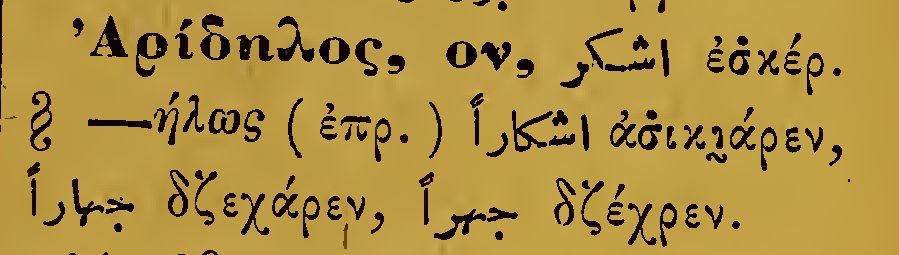 Ἀρίδηλος, ον, اشكر ἐσ̇κέρ.
§ —ήλως (ἐπρ.) اشكاراً ἀσ̇ικι̯άρεν,
جهاراً δζεχάρεν, جهراً δζέχρεν.